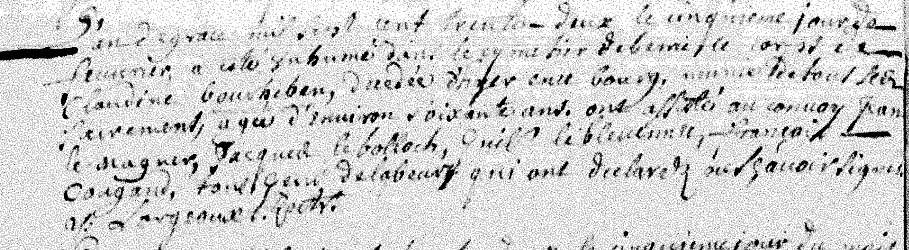 L'an de grace mil sept cent trente deux le cinquieme jour de
feuvrier a esté inhumé dans le cymetier de benic, le corps de
Claudine bourheben, decedée d'hyer en ce bourg, munie de tout ses
sacrements, agée d'environ soixante ans. ont assistés au convoy jan
le magner, Jacques le bolloch, Guill le bleutense, françois
Cougand, tous gens de labeurs qui ont declarez ne sçavoir signer
Largeaux. Pbtr.
le cinquieme jour du mois